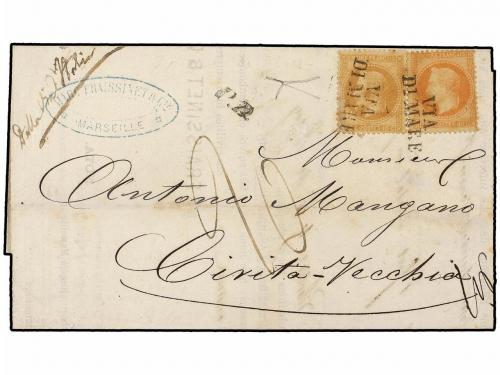 MARC FRAISSINET & Cie
MARSEILLE
P.D.
VIA
DI MARE
VIA
DI MARE
Monsieur
Antonio Mangano
Civita-Vecchia